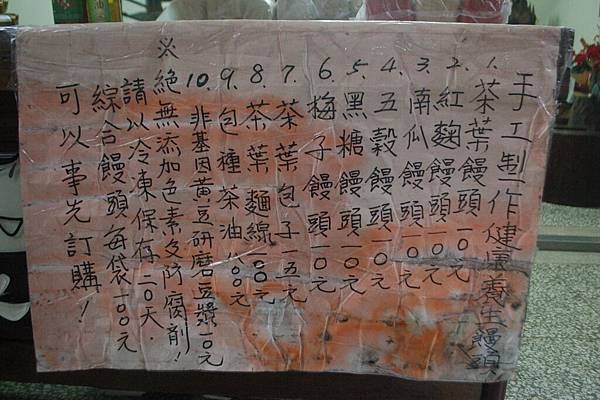 手工制作健康養生饅頭
1.茶葉饅頭一〇元
2.紅麴饅頭一〇元
3.南瓜饅頭一〇元
4.五穀饅頭一〇元
5.黑糖饅頭一〇元
6.梅子饅頭一〇元
7.茶葉包子一五元
8.茶葉麵線一00元
9.包種茶油八00元
10.非基因黃豆研磨豆漿一0元
※絕無添加色素及防腐劑!
請以冷凍保存二〇天.
綜合饅頭每袋一〇〇元
可以事先訂購!